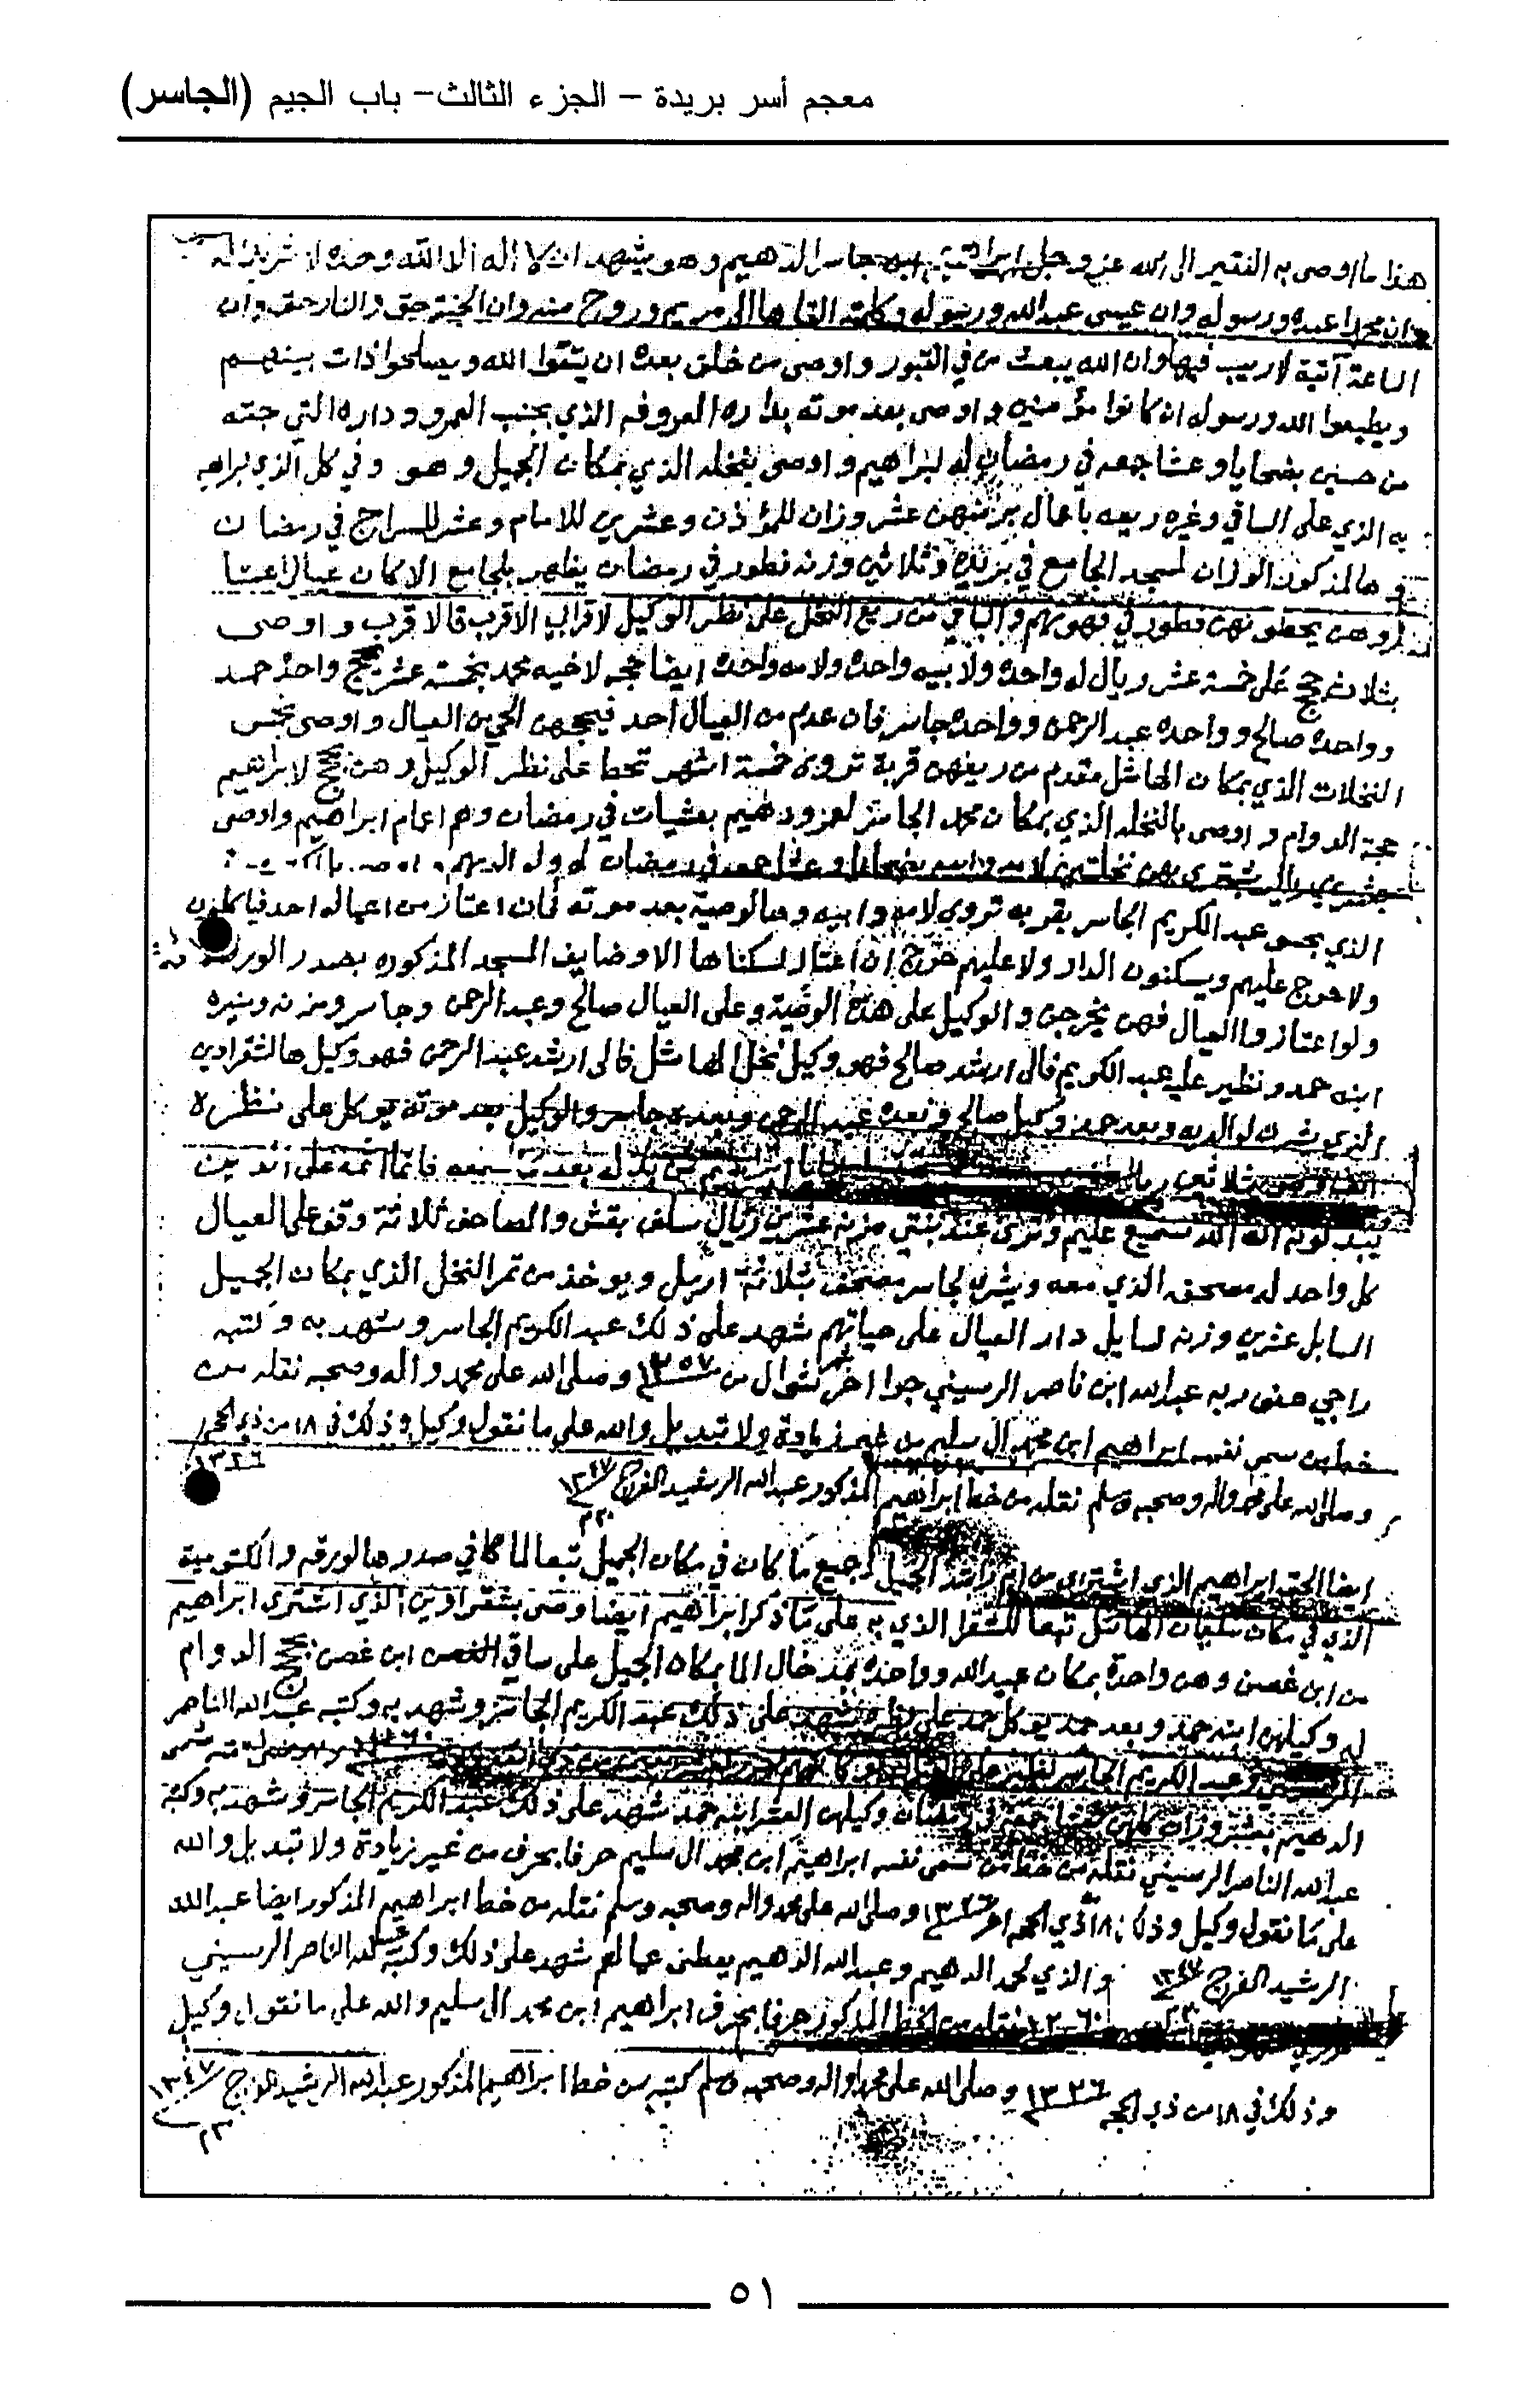 معجم أسر بريدة – الجزء الثالث– باب الجيم (الجاسر)
هذا ما اوصى به الفقير الى الله عز وجل ابراهيم ابن جاسر الدهيم وهو يشهد ان لا اله الا الله وحده لا شريك له
وان محمدا عبده ورسوله وان عيسى عبدالله ورسوله وكلمته القاها الى مريم وروح منه وان الجنة حق والنار حق وان
الساعة آتية لا ريب فيها وان الله يبعث من في القبور واوصى من خلف بعده ان يتقوا الله ويصلحوا ذات بينهم
ويطيعوا الله ورسوله ان كانوا مؤمنين واوصى بعد موته بداره المعروفه الذي بجنب المبرور وداره التي جته
من حسين بضحايا وعشا جمعه في رمضان له لبراهيم واوصى بنخله الذي بمكان الجميل وهو وفي كل الذي لبراهيم
به الذي على الساقي وغيره ريعه باعمال بر منهن عشر وزان للمؤذن وعشرين للامام وعشر للسراج في رمضان
وها المذكور الوزان لمسجد الجامع في بريدة وثلاثين وزنه فطور في رمضان يظهر بالجامع الا كان عيالي اعتنا
وهن يحطونهن فطور في قهوتهم والباقي من ريع النخل على نظر الوكيل لاقرابي الاقرب فالاقرب واوصى
بثلاث حجج على خمسة عشر ريال له واحدة ولابيه واحدة ولامه واحدة ايضا حجه لاخيه محمد بخمسة عشر يحج واحدة حمد
وواحدة صالح وواحدة عبدالرحمن وواحدة جاسر فان عدم من العيال احد فيحجهن الحي من العيال واوصى بخمس
النخلات الذي بمكان الهاشل مقدم من ريعهن قربة تروى خمسة اشهر تحط على نظر الوكيل وهن بحجج لابراهيم
حجة الدوام واوصى بالنخله الذي بمكان محمد الجاسر لعزو دهيم بعشيات في رمضان وهم اعمام ابراهيم واوصى
بعشرين ريال يشترى بهن نخلتين لامه وابيه بضحايا وعشا جمعه في رمضان له ولوالديهم واوصى
الذي عبدالكريم الجاسر بقربه تروى لامه وابيه وها الوصية بعد موته فان اعتاز من اعياله احد فياكلون
ولا حرج عليهم ويسكنون الدار ولا عليهم حرج ان اعتاز لسكناها الا وضايف المسجد المذكوره بصدر الورقه
ولو اعتازوا العيال فهن يخرجن والوكيل على هذه الوصية وعلى العيال صالح وعبدالرحمن وجاسر ومزنه ومنيره
ابنه حمد ونظير عليه عبدالكريم فالى ارشد صالح فهو وكيل نخل الهاشل فالى ارشد عبدالرحمن فهو وكيل ها الشقراوين
الذي شرى لوالديه وبعد حمد وكيل صالح وبعده عبدالرحمن وبعده جاسر والوكيل بعد موته يوكل على نظره
بثلاثين ريال بدله بعد ما سمعه فانما اثمه على الذين
يبدلونه ان الله سميع عليم وترى عند بنتي مزنه عشرين ريال سلف بقش والمصاحف ثلاثة وقف على العيال
كل واحد له مصحف الذي معه ويشرى لجاسر مصحف بثلاثة اريل ويوخذ من تمر النخل الذي بمكان الجميل
السابل عشرين وزنه لسايل دار العيال على حياتهم شهد على ذلك عبدالكريم الجاسر وشهد به وكتبه
راجي عفو ربه عبدالله ابن ناصر الرسيني جرا اخر شهر شوال من ١٢٥٧ وصلى الله على محمد واله وصحبه نقله من
خط من سمى نفسه ابراهيم ابن محمد ال سليم من غير زيادة ولا تبديل والله على ما نقول وكيل وذلك في ١٨ من ذي الحجه
١٣٢٦
وصلى الله على محمد واله وصحبه وسلم نقله من خط ابراهيم المذكور عبدالله الرشيد الفرج ١٣٤٧
ايضا الحق ابراهيم الذي اشترى من راشد الجميل جميع ما كان في مكان الجميل تبعا لما كان في صدر ها الورقه والكتوميه
الذي في مكان سليمان الهاشل تبعا للشقر الذي به على ما ذكر ابراهيم ايضا وصى بشقراوين الذي اشترى ابراهيم
من ابن غصن وهن واحدة بمكان عبدالله وواحدة بمدخال الما بمكان الجميل على ساقي ابن غصن بحجج الدوام
له وكيلهن ابنه حمد وبعد حمد يوكل حمد على نظره شهد على ذلك عبدالكريم الجاسر وشهد به وكتبه عبدالله الناصر
الرسيني وعبدالكريم الجاسر نظير على
الدهيم بعشر وزان كلهن عشا جمعه في رمضان وكيلهن ابنه حمد شهد على ذلك عبدالكريم الجاسر وشهد به وكتبه
عبدالله الناصر الرسيني نقله من خط من سمى نفسه ابراهيم ابن محمد ال سليم حرفا بحرف من غير زيادة ولا تبديل والله
على ما نقول وكيل وذلك ١٨ ذي الحجه ١٣٢٦ وصلى الله على محمد واله وصحبه وسلم نقله من خط ابراهيم المذكور ايضا عبدالله
الرشيد الفرج ١٣٤٧ والذي لحمد الدهيم وعبدالله الدهيم يعطى عيالهم شهد على ذلك وكتبه عبدالله الناصر الرسيني
١٢٦٠ نقله من الخط المذكور حرفا بحرف ابراهيم ابن محمد ال سليم والله على ما نقول وكيل
وذلك في ١٨ من ذي الحجه ١٣٢٦ وصلى الله على محمد واله وصحبه وسلم كتبه من خط ابراهيم المذكور عبدالله الرشيد الفرج ١٣٤٧
٥١